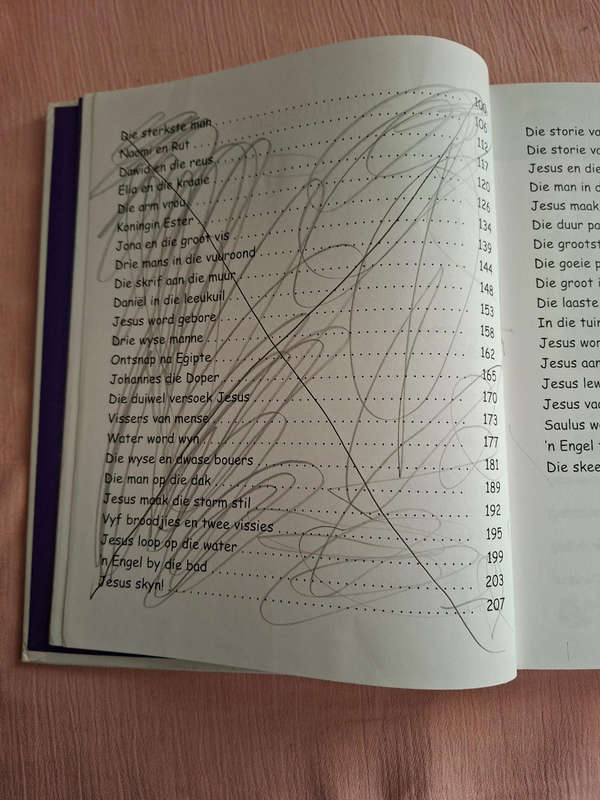 Die sterkste man 100
Naomi en Rut 106
Dawid en die reus 112
Elia en die kraaie 117
Die arm vrou 120
Koningin Ester 126
Jona en die groot vis 134
Drie mans in die vuuroond 139
Die skrif aan die muur 144
Daniel in die leeukuil 148
Jesus word gebore 153
Drie wyse manne 158
Ontsnap na Egipte 162
Johannes die Doper 165
Die duiwel versoek Jesus 170
Vissers van mense 173
Water word wyn 177
Die wyse en dwase bouers 181
Die man op die dak 189
Jesus maak die storm stil 192
Vyf broodjies en twee vissies 195
Jesus loop op die water 199
'n Engel by die bad 203
Jesus skyn! 207
Die storie
Die storie
Jesus en die
Die man in
Jesus maak
Die duur
Die
Die goeie
Die groot
Die laaste
In die
Jesus
Jesus
Jesus
Jesus
Saulus
'n Engel
Die